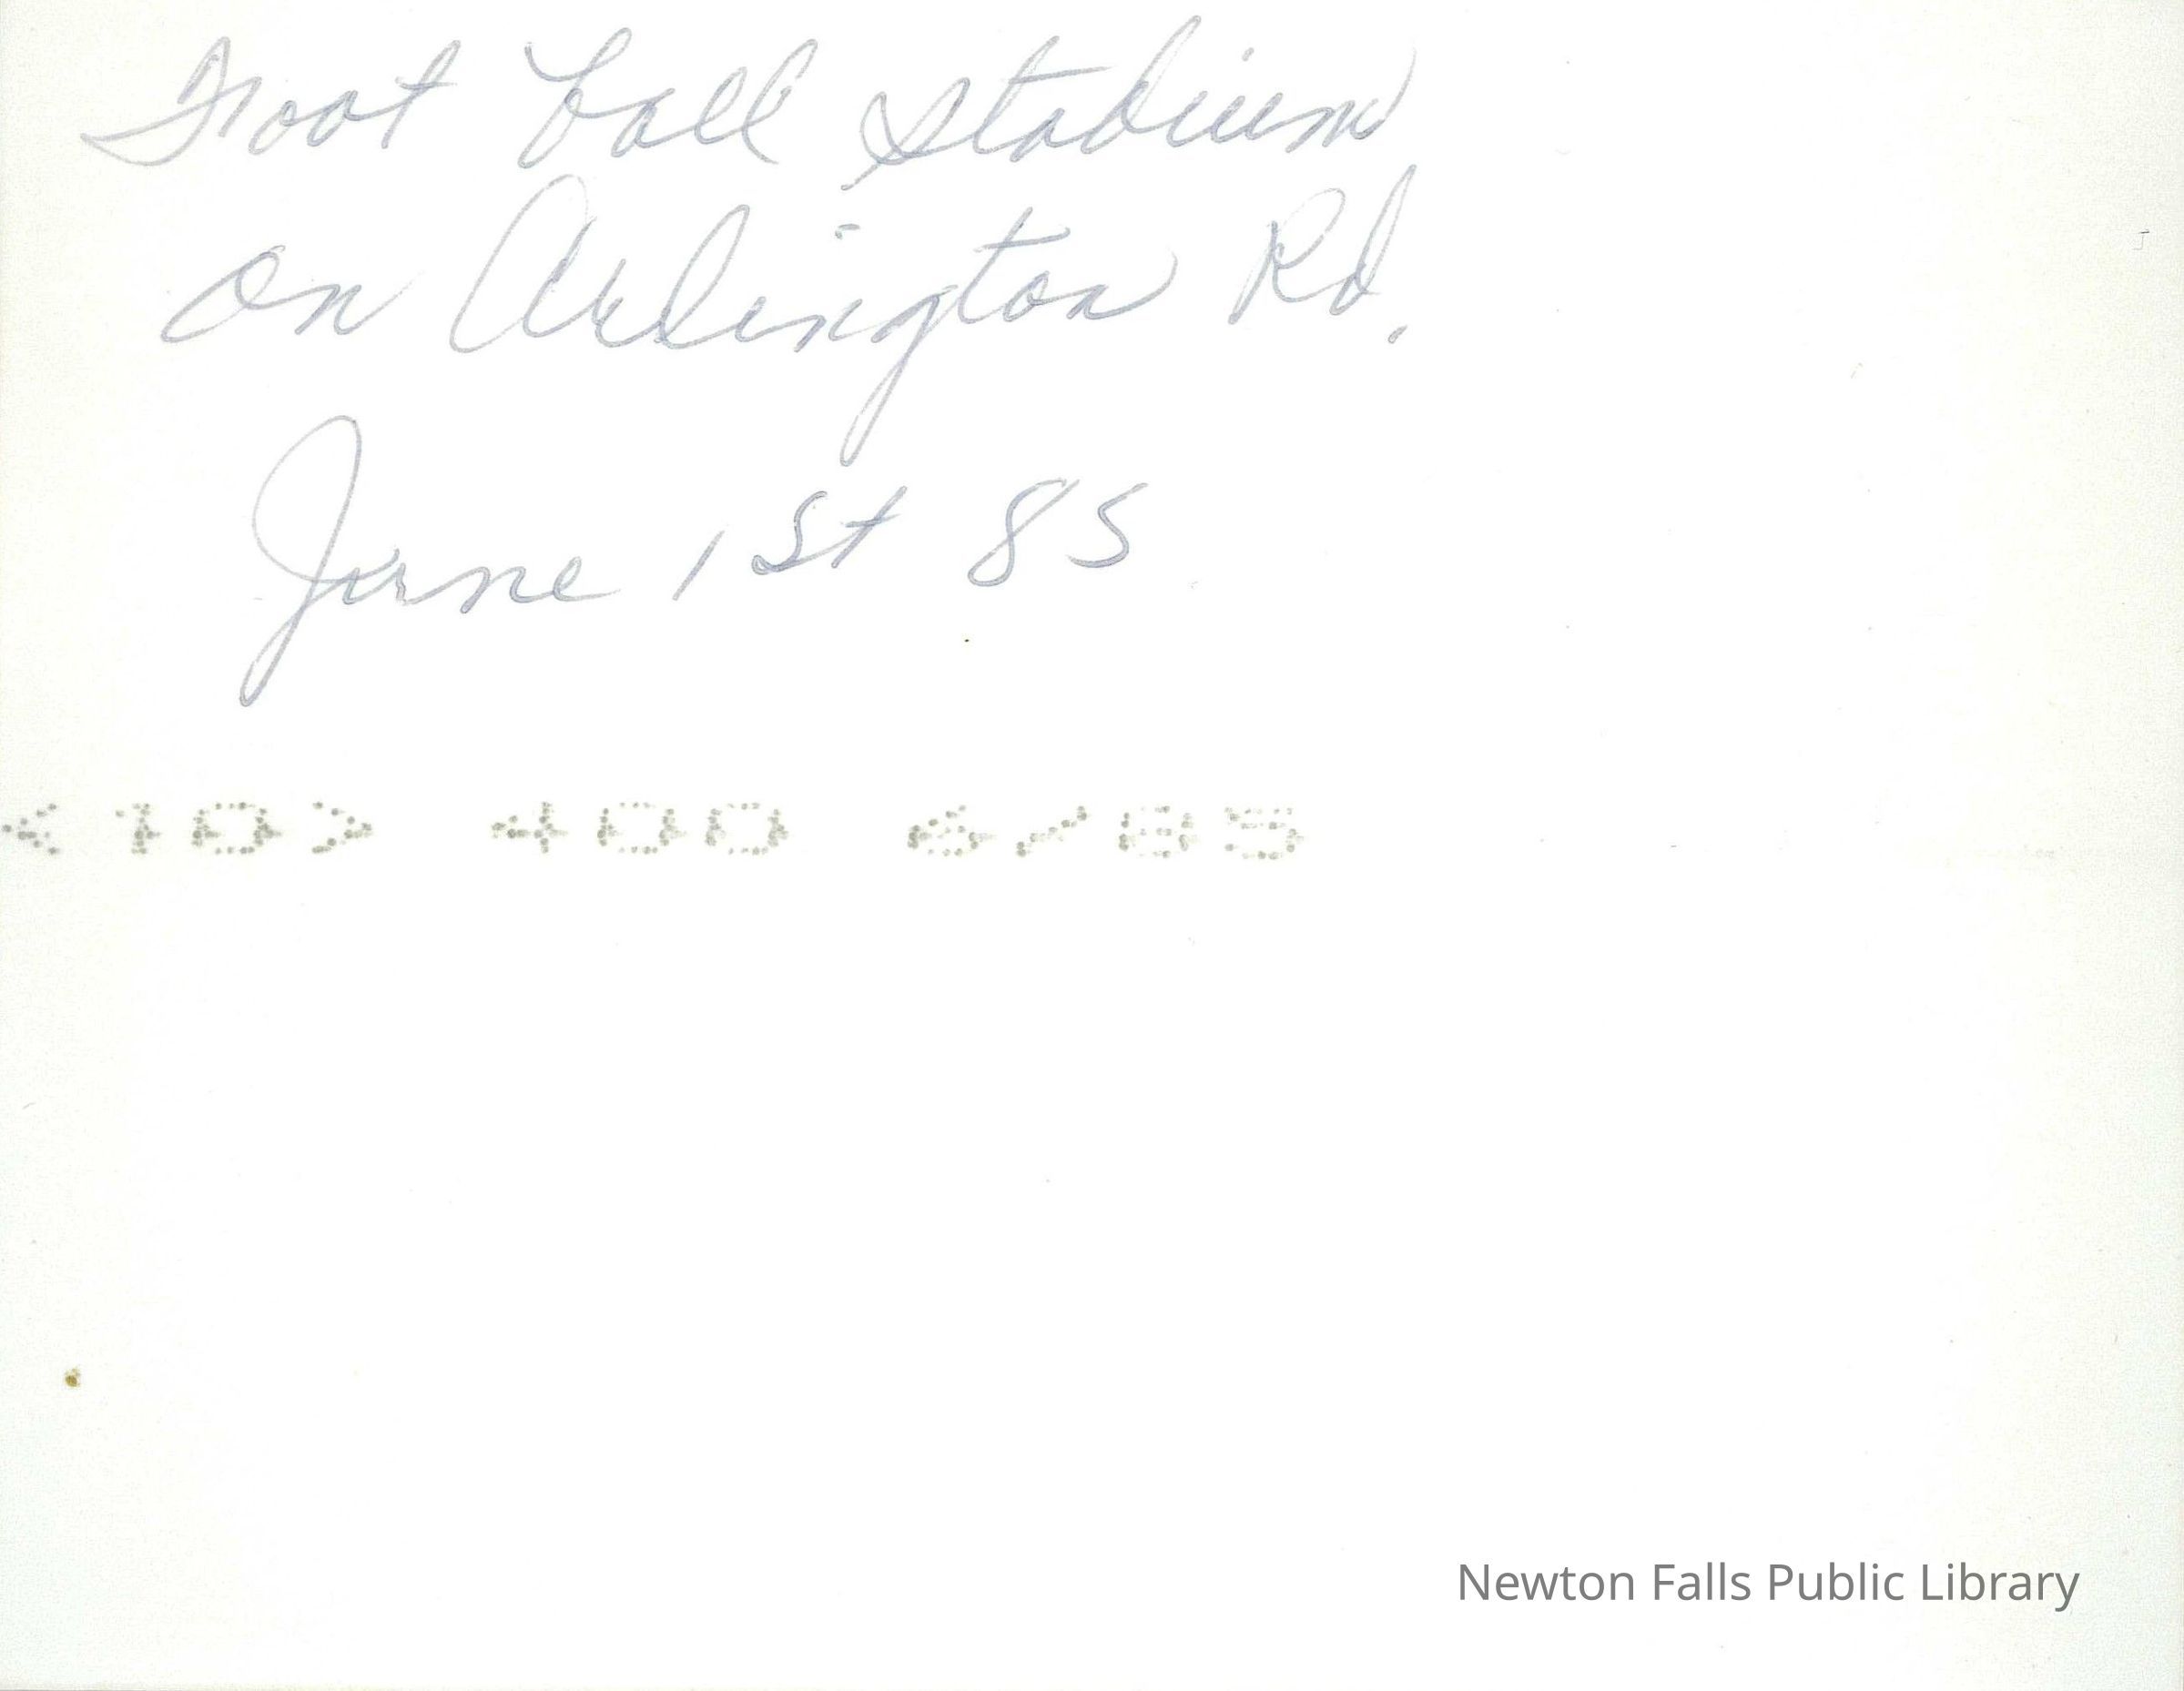 Foot ball Stadium
on Arlington Rd.
June 1st 85
<10> 400 6/85
Newton Falls Public Library